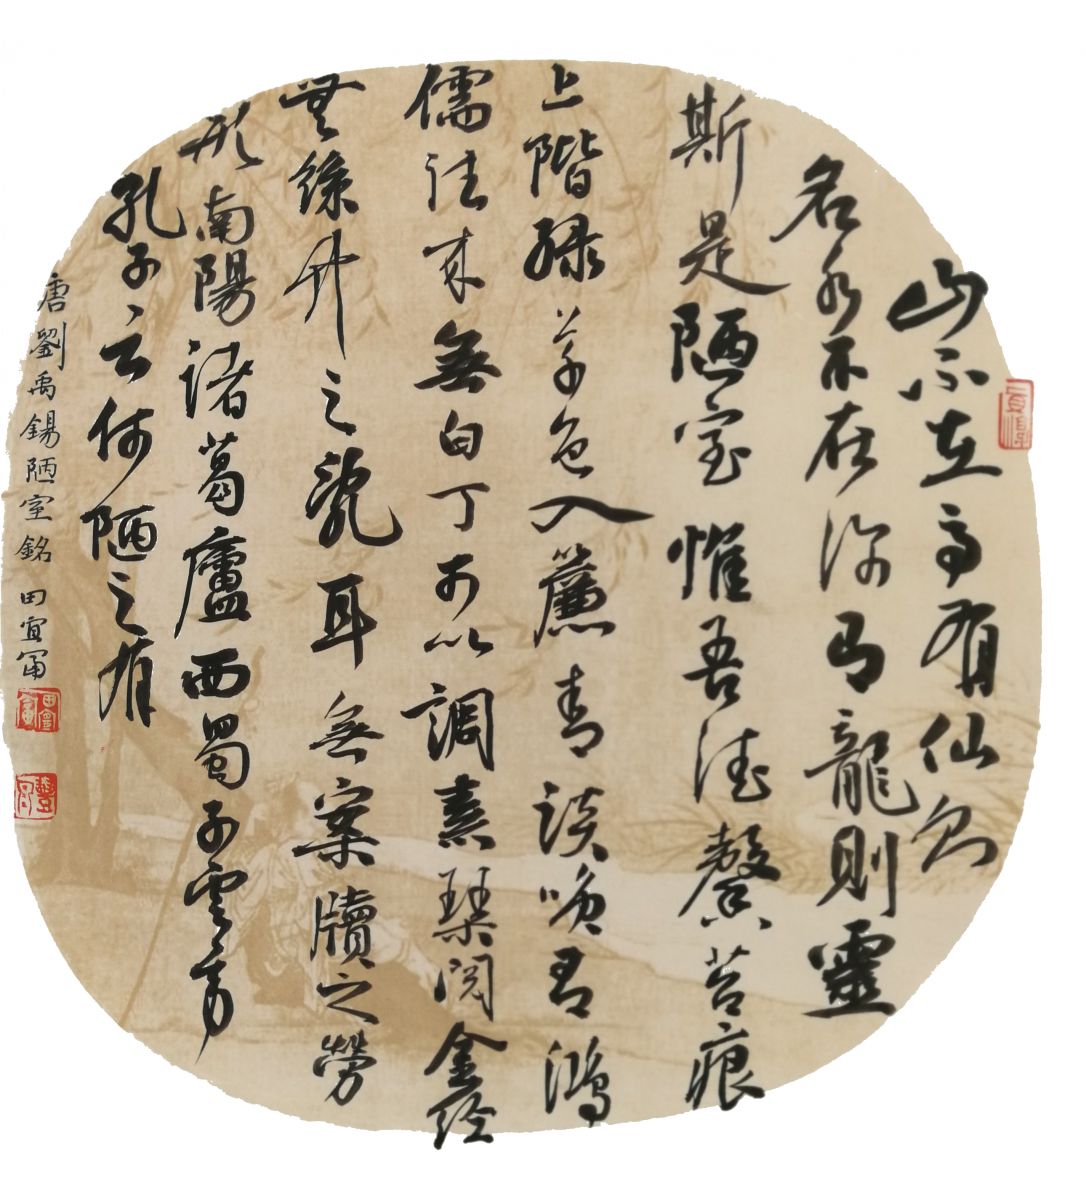 山不在高有仙則
名水不在深有龍則靈
斯是陋室惟吾德馨苔痕
上階緑草色入簾青談咲有鴻
儒往来無白丁可以調素琴閲金經
無絲竹之乱耳無案牘之勞
形南陽諸葛廬西蜀子雲亭
孔子云何陋之有
唐劉禹錫陋室銘 田宜